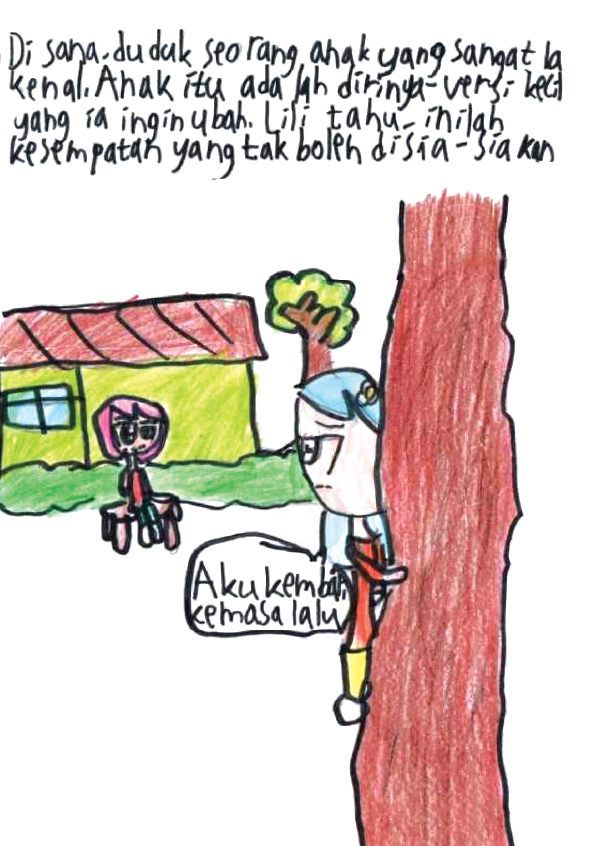 Di sana, duduk seorang anak yang sangat Ia
kenal. Anak itu adalah dirinya-versi kecil
yang ia ingin ubah. Lili tahu, inilah
kesempatan yang tak boleh disia-siakan
Aku kembali
kemasa lalu